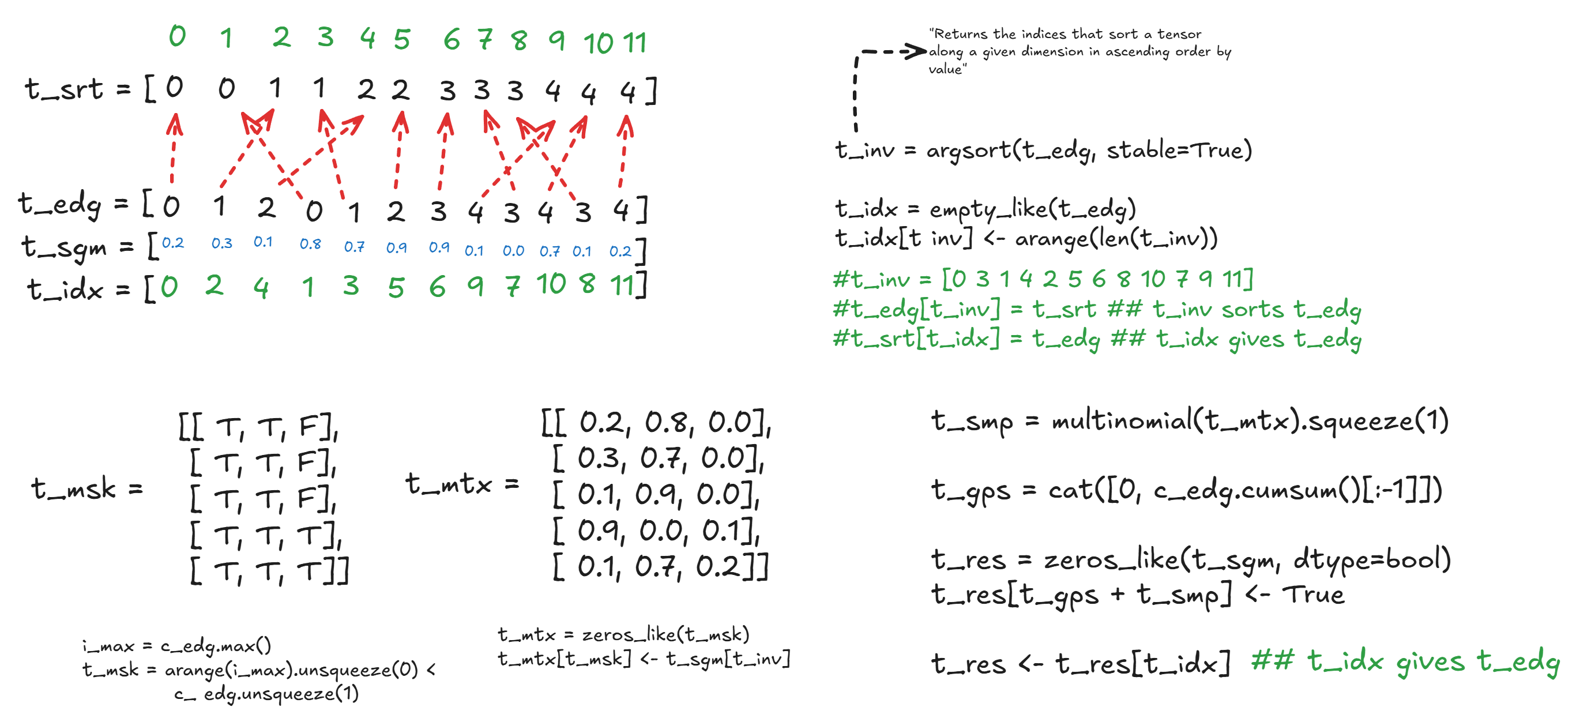 0 1 2 3 4 5 6 7 8 9 10 11
t_srt = [ 0 0 1 1 2 2 3 3 3 4 4 4 ]
t_edg = [ 0 1 2 0 1 2 3 4 3 4 3 4 ]
t_sgm = [ 0.2 0.3 0.1 0.8 0.7 0.9 0.9 0.1 0.0 0.7 0.1 0.2 ]
t_idx = [ 0 2 4 1 3 5 6 9 7 10 8 11 ]
"Returns the indices that sort a tensor
along a given dimension in ascending order by
value"
t_inv = argsort(t_edg, stable=True)
t_idx = empty_like(t_edg)
t_idx[t inv] <- arange(len(t_inv))
#t_inv = [0 3 1 4 2 5 6 8 10 7 9 11]
#t_edg[t_inv] = t_srt ## t_inv sorts t_edg
#t_srt[t_idx] = t_edg ## t_idx gives t_edg
t_msk =
[[ T, T, F],
[ T, T, F],
[ T, T, F],
[ T, T, T],
[ T, T, T]]
i_max = c_edg.max()
t_msk = arange(i_max).unsqueeze(0) <
c_ edg.unsqueeze(1)
t_mtx =
[[ 0.2, 0.8, 0.0],
[ 0.3, 0.7, 0.0],
[ 0.1, 0.9, 0.0],
[ 0.9, 0.0, 0.1],
[ 0.1, 0.7, 0.2]]
t_mtx = zeros_like(t_msk)
t_mtx[t_msk] <- t_sgm[t_inv]
t_smp = multinomial(t_mtx).squeeze(1)
t_gps = cat([0, c_edg.cumsum()[:-1]])
t_res = zeros_like(t_sgm, dtype=bool)
t_res[t_gps + t_smp] <- True
t_res <- t_res[t_idx] ## t_idx gives t_edg